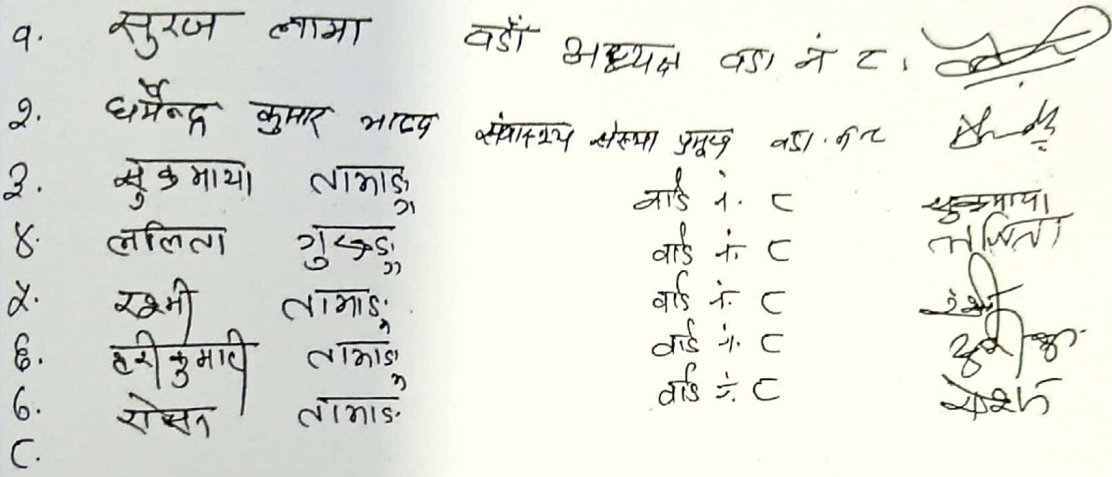 १. सुरज लामा वडाँ अध्यक्ष वडा नं ८.
२. धर्मेन्द्र कुमार यादव स्वास्थ्य संस्था प्रमुख वडा नं ८
३. सुकमाया तामाङ वार्ड नं. ८ सुकमाया
४. ललिता गुरुङ वार्ड नं. ८ ललिता
५. रश्मी तामाङ वार्ड नं. ८ रश्मी
६. हरीकुमारी तामाङ वार्ड नं. ८
७. रोसन तामाङ वार्ड नं. ८ रोशन
८.